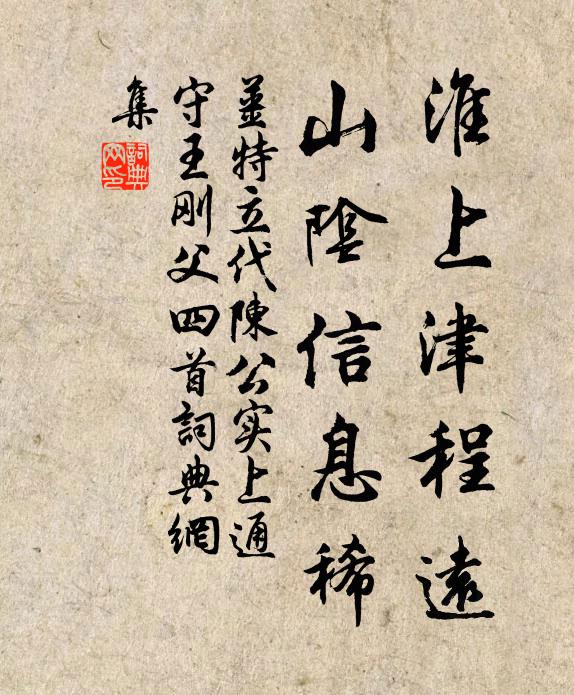 淮上津程遠
山陰信息稀
姜特立代陳公实上通
守王剛父四首詞典網
集
詞典
网印